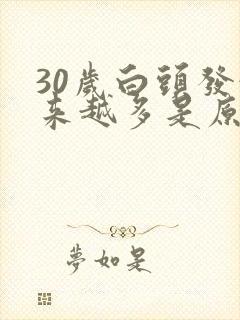 30歲白頭發
來越多是原
夢如是